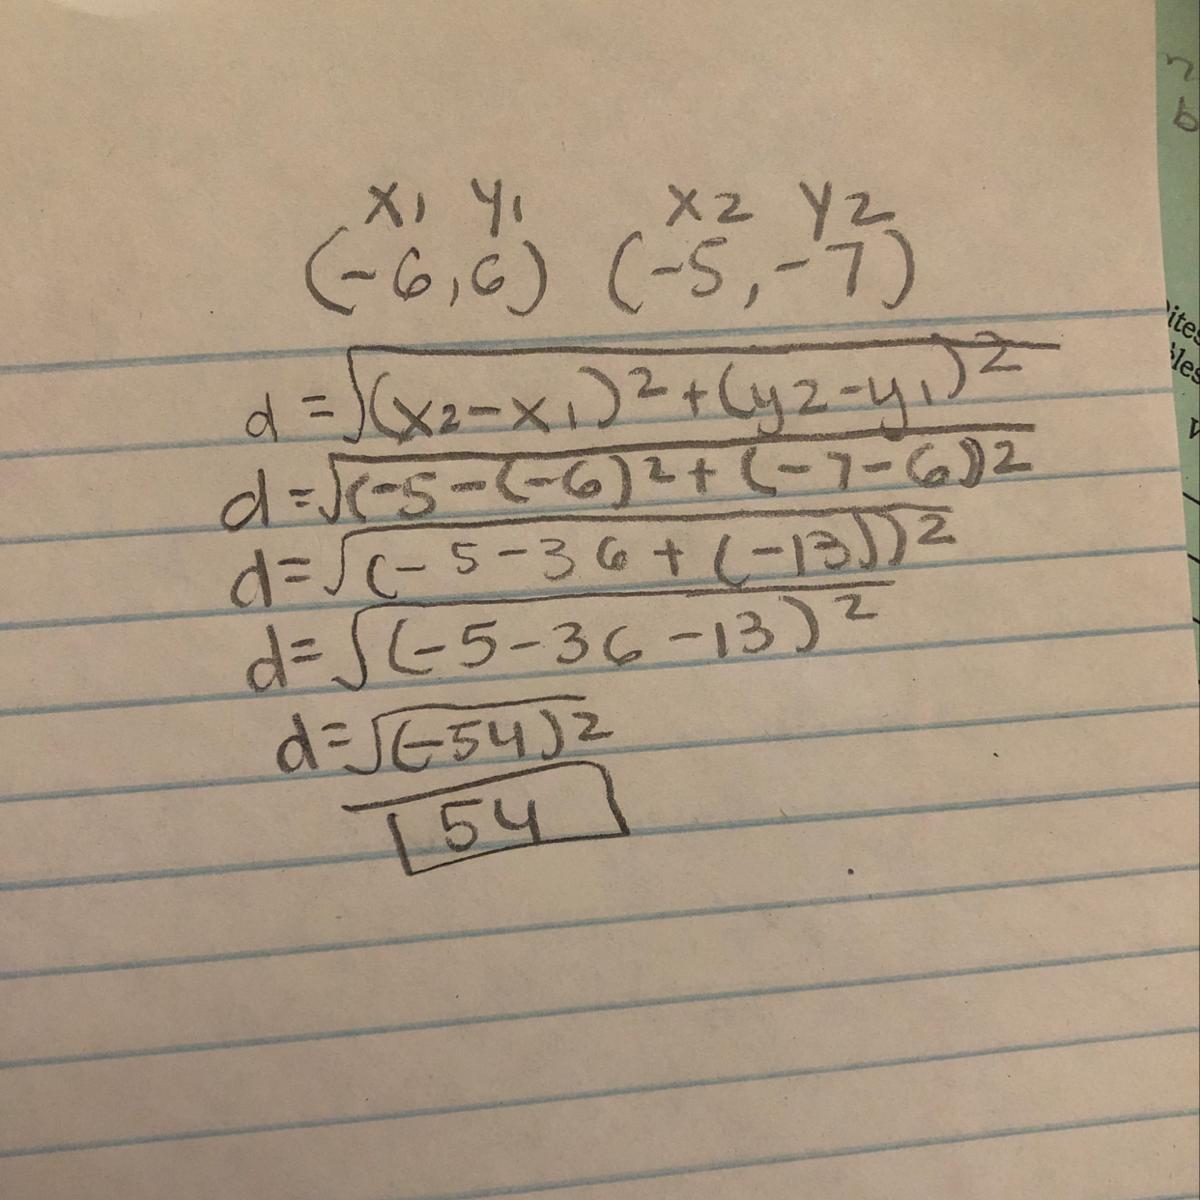 x1 y1 x2 y2
(-6,6) (-5,-7)
d=√(x2-x1)²+(y2-y1)²
d=√(-5-(-6)²+(-7-6))²
d=√(-5-36+(-13)))²
d=√(-5-36-13)²
d=√(-54)²
54